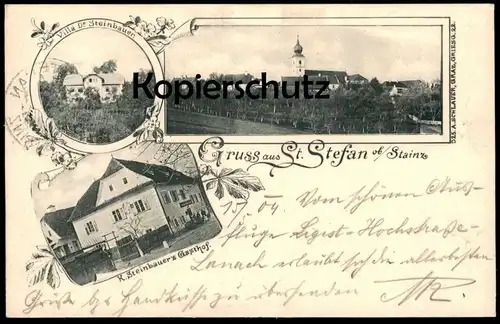 Villa Dr Steinbauer
Kopierschutz
Gruss aus St. Stefan ob/ Stainz.
K. Steinbauer's Gasthof.
15/5 04. Vom schönen Aus-
fluge Ligist-Hochstraße-
Lanach erlaubt sich die allerbesten
Grüße by Handküsse zu übersenden